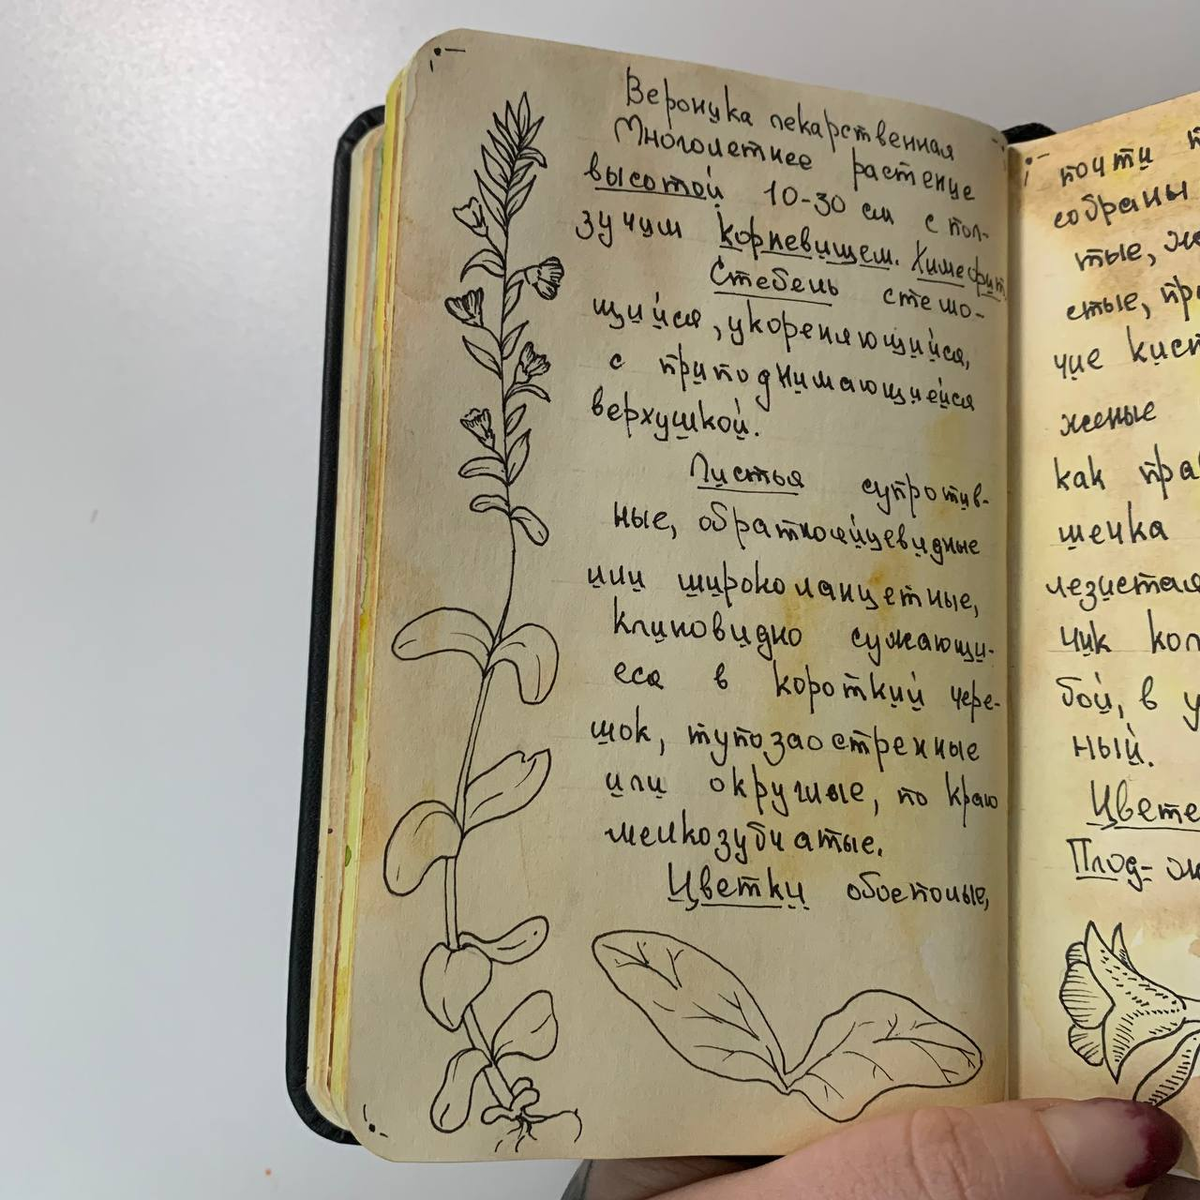 Веронука лекарственная
Многолетнее растение
высотой 10-30 см с пол-
зучим корневищем. Химефит.
Стебель стелю-
щийся, укореняющийся,
с приподнимающиейся
верхушкой.
Листья супротив-
ные, обратнояйцевидные
или широколанцетные,
клиновидно сужающи-
еся в короткий чере-
шок, тупозаостренные
или округлые, по краю
мелкозубчатые.
Цветки обоеполые,
почти
собраны
тые,
стые,
чие
жёные
как
шечка
лезистая
чик
бой, в
ный.
Плод-